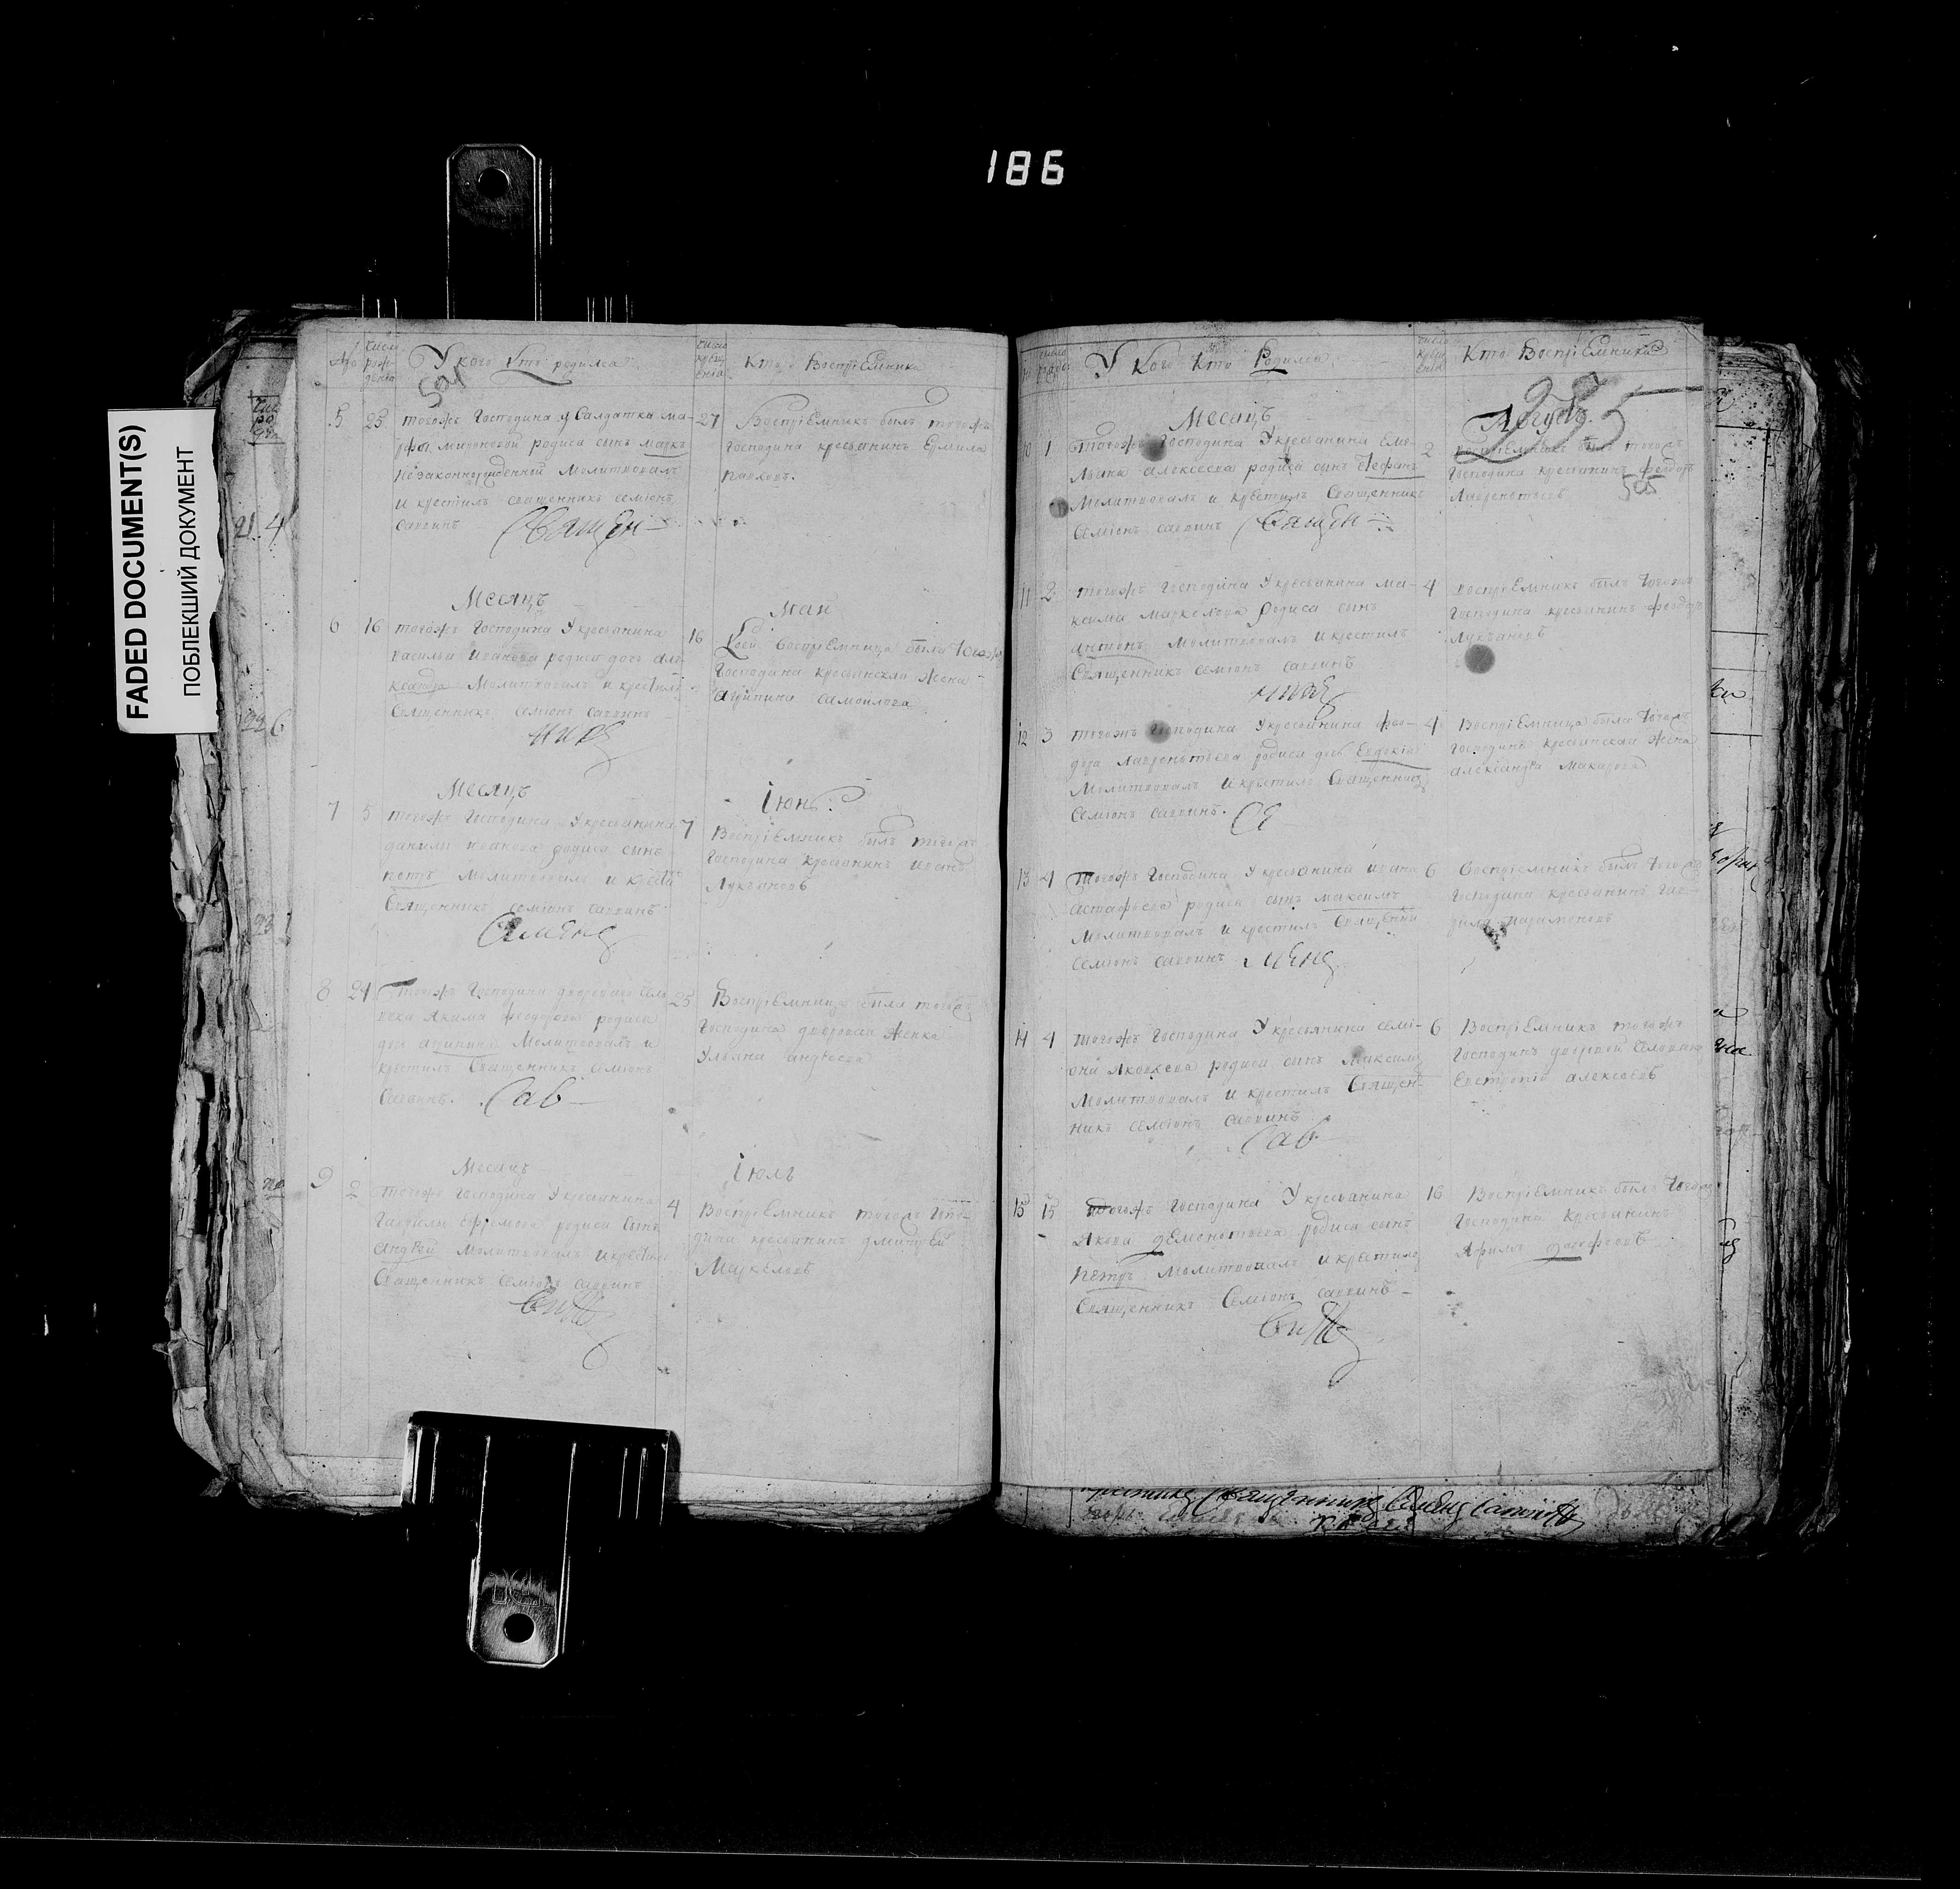 186
FADED DOCUMENT(S)
ПОБЛЕКШИЙ ДОКУМЕНТ
число рож дениа
У кого кто родилса
число крещ ениа
Кто Воспрiемники
5 25 тогожъ Господина у Салдатка ма-
рфы мироновой родиса сынъ маркъ
незаконнорожденной Молитвовалъ
и крестилъ священникъ семiонъ
саввинъ Священ
27 Воспрiемникъ былъ тогожъ
господина кресьанинъ Ермила
павловъ.
Месяцъ Май
6 16 тогожъ Господина У кресьанина
василья Иванова родиса дочь але-
ксандра Молитвовалъ и крестилъ
Священникъ семiонъ саввинъ
никъ
16 воспрiемница была тогожъ
Господина кресьанская жена
агрипина самоилова
Месяцъ Iюнь
7 5 тогожъ Господина У кресьанина
данилы иванова родиса сынъ
петръ Молитвовалъ и крести
Священникъ семiонъ саввинъ
Семенъ
7 Воспрiемникъ былъ тогожъ
Господина кресьанинъ иванъ
Лукьановъ
8 24 тогожъ Господина двороваго чело
века Акима феодорова родиса
дочь Молитвовалъ и
крестилъ Священникъ семiонъ
Саввинъ. Сав
25 Воспрiемница была тогожъ
Господина дворовая женка
Ульяна андреева
Месяцъ Iюль
9 2 тогожъ Господина У кресьанина
Гаврилы Ефремова родиса сынъ
андрей Молитвовалъ и крестилъ
Священникъ семiонъ саввинъ
4 Воспрiемникъ тогожъ Госпо-
дина кресьанинъ дмитрей
Маркеловъ
У кого кто Родилса
число крещ ениа
Кто Воспрiемники
Месяцъ Августъ
595
10 1 тогожъ Господина У кресьанина Еме-
льяна алексеева родиса сынъ стефанъ
Молитвовалъ и крестилъ Священникъ
Семiонъ саввинъ Священ
2 воспрiемникъ былъ тогожъ
Господина кресьанинъ феодоръ
Лаврентьевъ
11 2 тогожъ Господина У кресьанина ма-
ксима маркелова родиса сынъ
антонъ Молитвовалъ и крестилъ
Священникъ семiонъ саввинъ
никъ
4 воспрiемникъ былъ тогожъ
Господина кресьанинъ феодоръ
Лукьановъ
12 3 тогожъ Господина У кресьанина фео-
дора лаврентьева родиса дочь Евдокiа
Молитвовалъ и крестилъ Священникъ
Семiонъ саввинъ. Се
4 Воспрiемница была тогожъ
господина кресьанская жена
александра Макарова
13 4 Тогожъ Господина У кресьанина ивана
астафьева родиса сынъ максимъ
Молитвовалъ и крестилъ Священни
семiонъ саввинъ менъ
6 Воспрiемникъ былъ тогожъ
Господина кресьанинъ гав-
рила парамоновъ
14 4 тогожъ Господина У кресьанина семi-
она Яковлева родиса сынъ Максимъ
Молитвовалъ и крестилъ Священ-
никъ семiонъ саввинъ
Сав
6 Воспрiемникъ тогожъ
Господина дворовой человекъ
Евстропiй алексеевъ
15 15 тогожъ Господина У кресьанина
Якова дементьева родиса сынъ
Петръ Молитвовалъ и крестилъ
Священникъ Семiонъ саввинъ
16 Воспрiемникъ былъ тогожъ
Господина Кресьанинъ